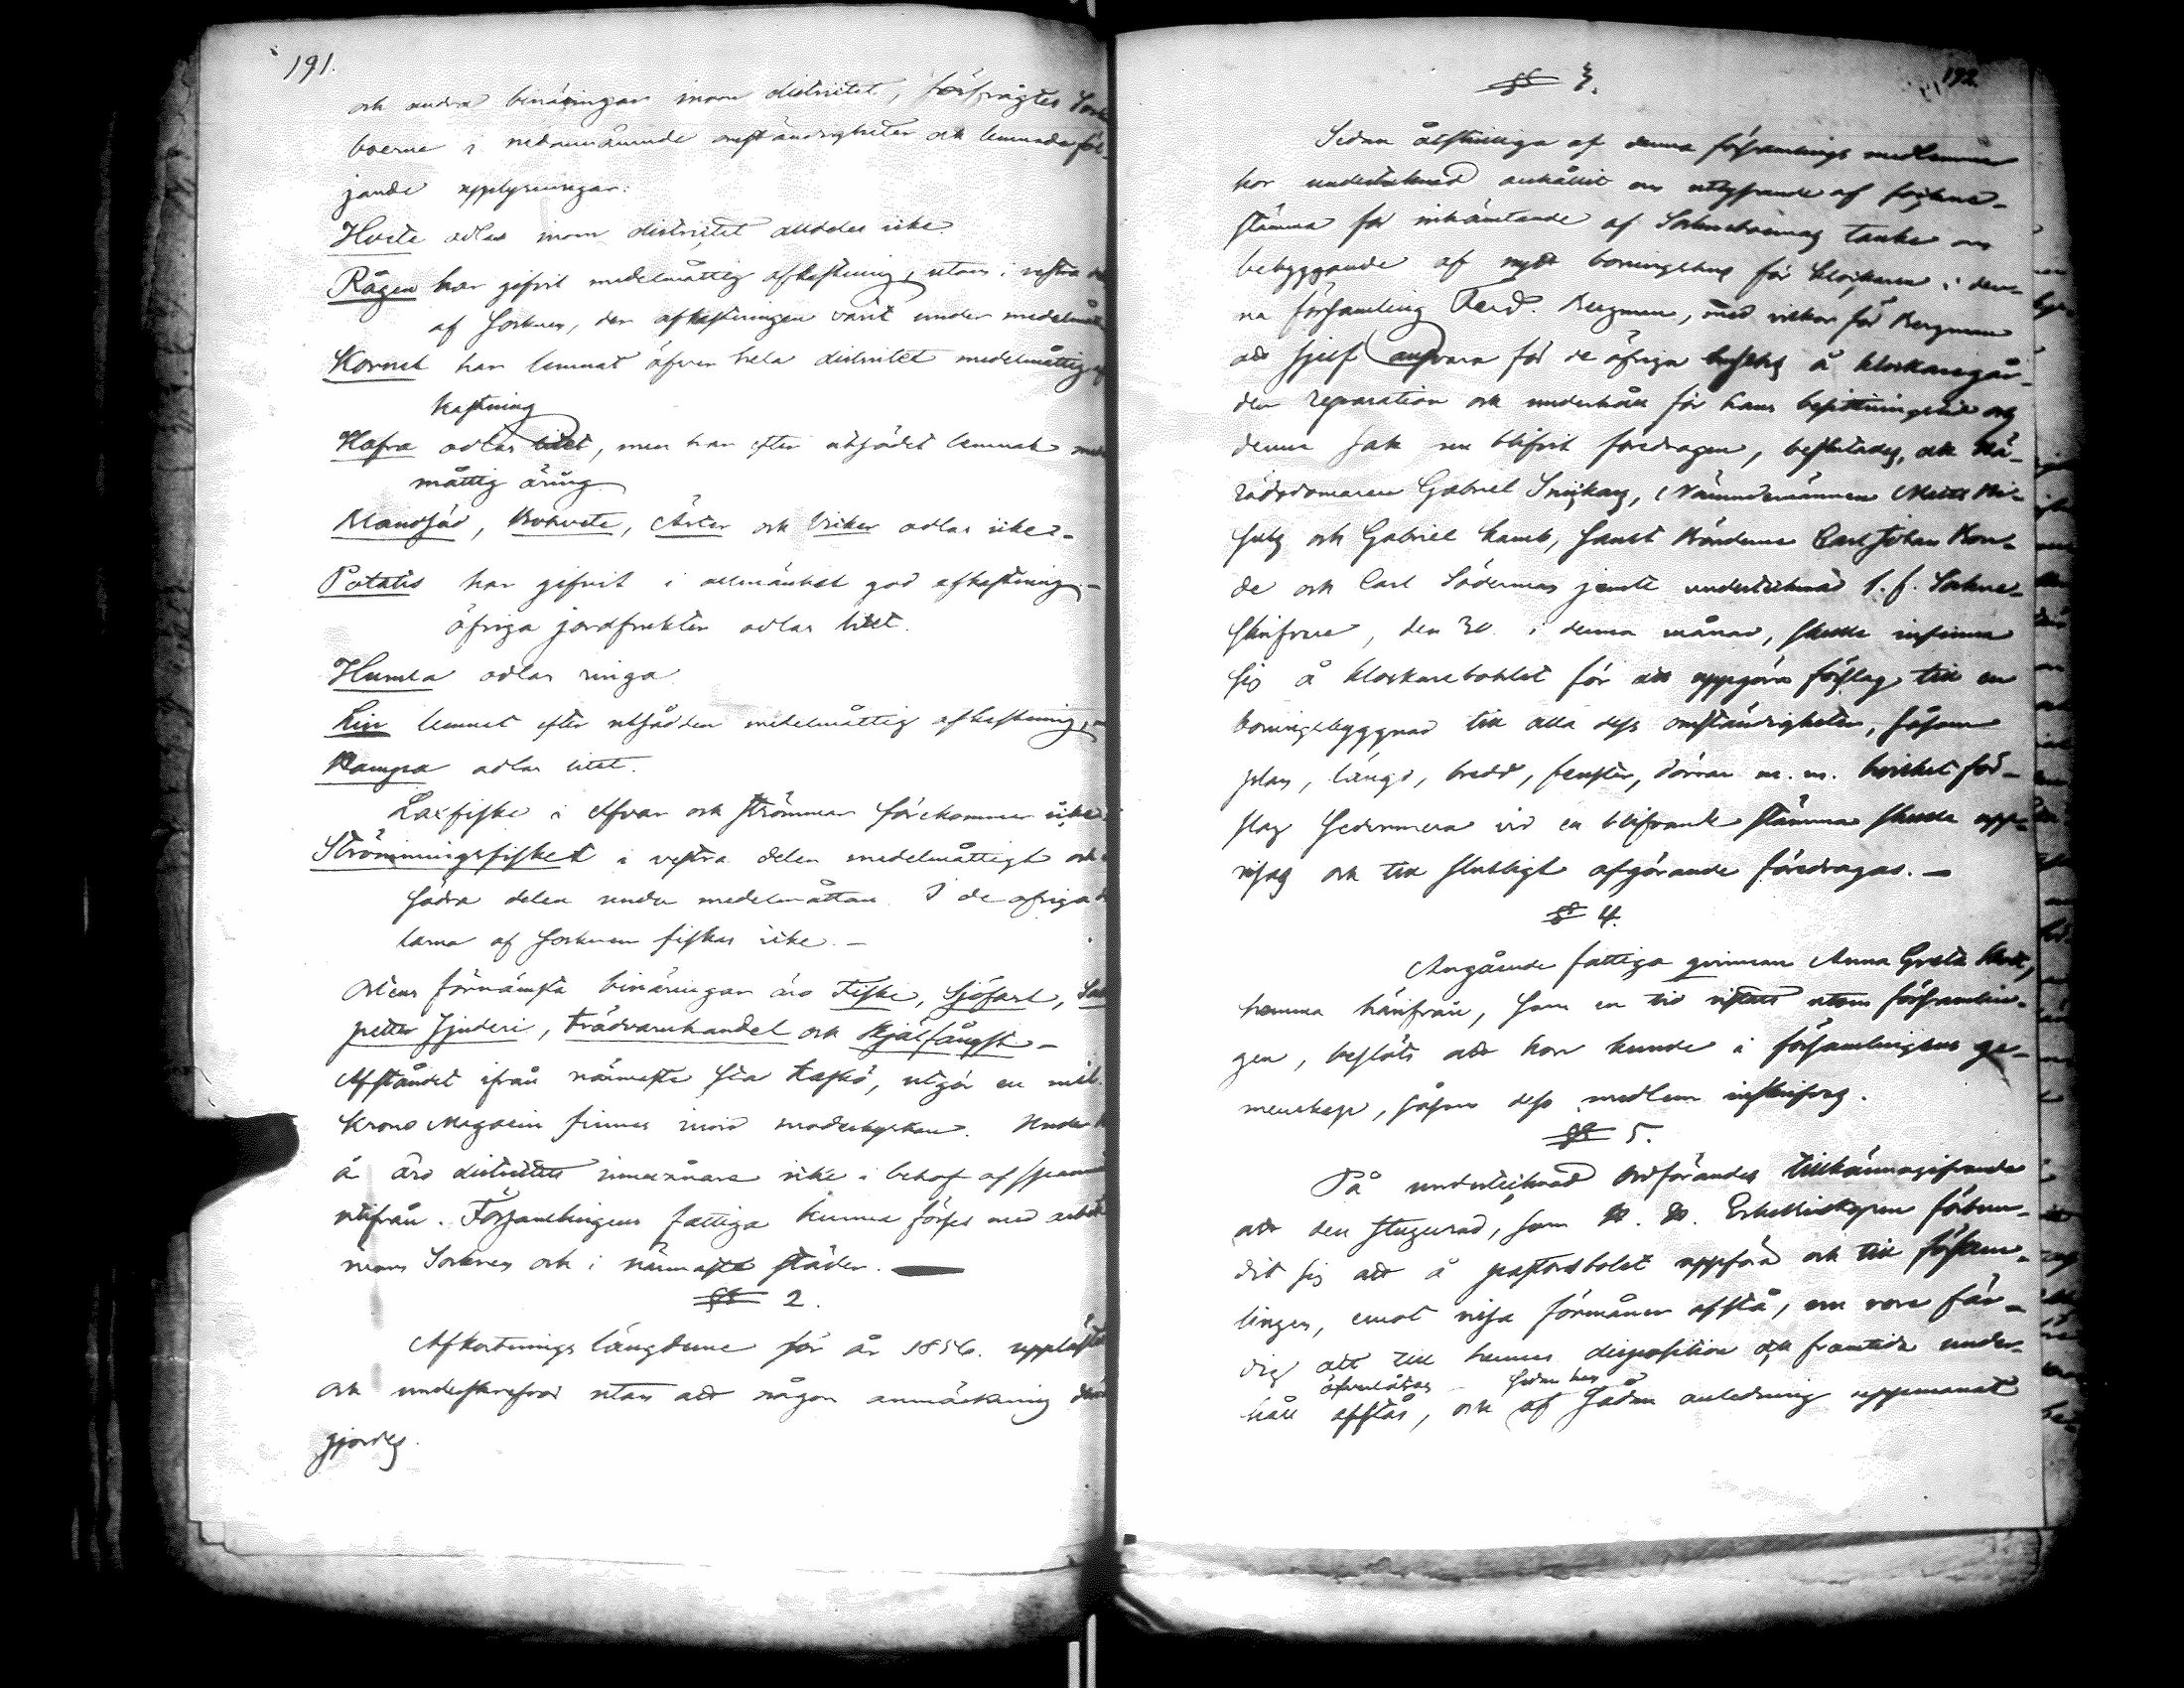 191.
och andra binäringar inom distriktet, förfrågtes Sock
boerne i nedannämnde omständigheter och lemnade föl-
jande upplysningar.
Hvete odlas inom distriktet alldeles icke.
Rågen har gifvit medelmåttig afkastning, utom i vestra
af Socknen, der afkastningen varit under medelmåtta
Kornet har lemnat öfver hela distriktet medelmåttig af
kastning
Hafra odlas litet, men har efter utsädet lemnat med
måttig äring
Blandsäd, Bohvete, Ärter och Vicker odlas icke.-
Potatis har gifvit i allmänhet god afkastning.-
öfriga jordfrukter odlas litet.
Humla odlas ringa
Lin lemnat efter utsäden medelmåttig afkastning.-
Hampa odlas litet.
Laxfiske i elfvar och strömmar förekommer icke
Strömmingsfisket i vestra delen medelmåttigt och
södra delen under medelmåttan. I de öfriga de
larna af Socknen fiskas icke.-
Ortens förnämsta binäringar äro Fiske, Sjöfart, Sal
petter sjuderi, trädvaruhandel och Skjälfångst.-
Afståndet ifrån närmaste sta Kaskö, utgör en mil.
Krono Magasin finnes invid moderkyrkan. Under
å äro distriktets innevånare icke i behof af spanmål
utifrån. Församlingens fattiga kunna förses med arbete
inom Socknen och i närmaste städer.
§§ 2.
Afkortnings längderne för år 1856. upplästes
och underskrefvos utan att någon anmärkning der
gjordes.
192.
§§ 3.
Sedan åtskilliga af denna församlings medlemmar
hos undertecknad anhållit om utlysande af sockne-
stämma för inhämtande af Sockneboernas tanke om
bebyggande af nytt boningshus för klockaren i den-
na församling Ferd. Bergman, med vilkor för Bergman
att sjelf ansvara för de öfriga husens å klockaregår-
den reparation och underhåll för hans besittningstid och
denna sak nu blifvit föredragen, beslutades, att Hä-
radsdomaren Gabriel Snickars, Nämndemännen Matts
och Gabriel Lamb, samt Bönderne Carl Johan
de och Carl Söderman jemte undertecknad t. f. Sockne-
skrifvare, den 30 i denna månad, skulle infinna
sig å klockarebohlet för att uppgöra förslag till en
boningsbyggnad till alla dess omständigheter, såsom
plan, längd, bredd, fenster, dörrar m. m. hvilket för-
slag sedermera vid en blifvande stämma skulle upp-
visas och till slutligt afgörande föredragas.-
§§ 4.
Angående fattiga qvinnan Anna Greta
hemma härifrån, som en tid vistats utom församlin-
gen, beslöts att hon kunde i församlingens ge-
menskap, såsom dess medlem inskrifvas.
§§ 5.
På undertecknad Ordförandes tillkännagifvande
att den stugurad, som förbun-
dit sig att å pastorsbolet uppföra och till försam-
lingen, emot vissa förmåner afstå, nu vore fär-
dig att till hennes disposition och framtida under-
öfverlåtas sedan han
håll afstås, och af sådan anledning uppmanat